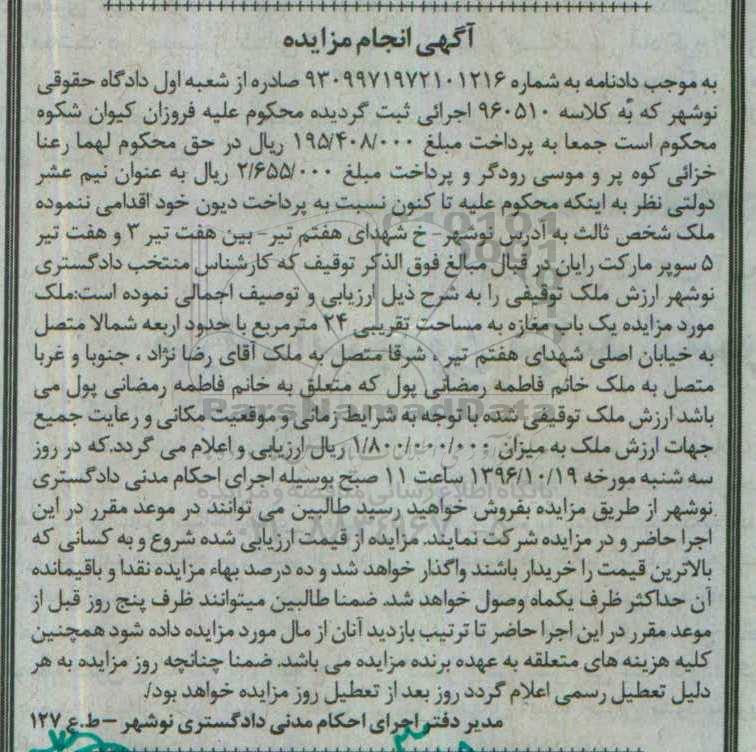 آگهی انجام مزایده
به موجب دادنامه به شماره ۹۳۰۹۹۷۱۹۷۲۱۰۱۲۱۶ صادره از شعبه اول دادگاه حقوقی
نوشهر که به کلاسه ۹۶۰۵۱۰ اجرائی ثبت گردیده محکوم علیه فروزان کیوان شکوه
محکوم است جمعا به پرداخت مبلغ ۱۹۵/۴۰۸/۰۰۰ ریال در حق محکوم لهما رعنا
خزائی کوه پر و موسی رودگر و پرداخت مبلغ ۲/۶۵۵/۰۰۰ ریال به عنوان نیم عشر
دولتی نظر به اینکه محکوم علیه تا کنون نسبت به پرداخت دیون خود اقدامی ننموده
ملک شخص ثالث به آدرس نوشهر- خ شهدای هفتم تیر- بین هفت تیر ۳ و هفت تیر
۵ سوپر مارکت رایان در قبال مبالغ فوق الذکر توقیف که کارشناس منتخب دادگستری
نوشهر ارزش ملک توقیفی را به شرح ذیل ارزیابی و توصیف اجمالی نموده است:ملک
مورد مزایده یک باب مغازه به مساحت تقریبی ۲۴ مترمربع با حدود اربعه شمالا متصل
به خیابان اصلی شهدای هفتم تیر ، شرقا متصل به ملک آقای رضا نژاد ، جنوبا و غربا
متصل به ملک خانم فاطمه رمضانی پول که متعلق به خانم فاطمه رمضانی پول می
باشد ارزش ملک توقیفی شده با توجه به شرایط زمانی و موقعیت مکانی و رعایت جمیع
جهات ارزش ملک به میزان ۱/۸۰۰/۰۰۰/۰۰۰ ریال ارزیابی و اعلام می گردد.که در روز
سه شنبه مورخه ۱۳۹۶/۱۰/۱۹ ساعت ۱۱ صبح بوسیله اجرای احکام مدنی دادگستری
نوشهر از طریق مزایده بفروش خواهید رسید طالبین می توانند در موعد مقرر در این
اجرا حاضر و در مزایده شرکت نمایند. مزایده از قیمت ارزیابی شده شروع و به کسانی که
بالاترین قیمت را خریدار باشند واگذار خواهد شد و ده درصد بهاء مزایده نقدا و باقیمانده
آن حداکثر ظرف یکماه وصول خواهد شد. ضمنا طالبین میتوانند ظرف پنج روز قبل از
موعد مقرر در این اجرا حاضر تا ترتیب بازدید آنان از مال مورد مزایده داده شود همچنین
کلیه هزینه های متعلقه به عهده برنده مزایده می باشد. ضمنا چنانچه روز مزایده به هر
دلیل تعطیل رسمی اعلام گردد روز بعد از تعطیل روز مزایده خواهد بود/.
مدیر دفتر اجرای احکام مدنی دادگستری نوشهر –ط.ع ۱۲۷
ParsNamadData
پایگاه اطلاع رسانی مناقصه و مزایده